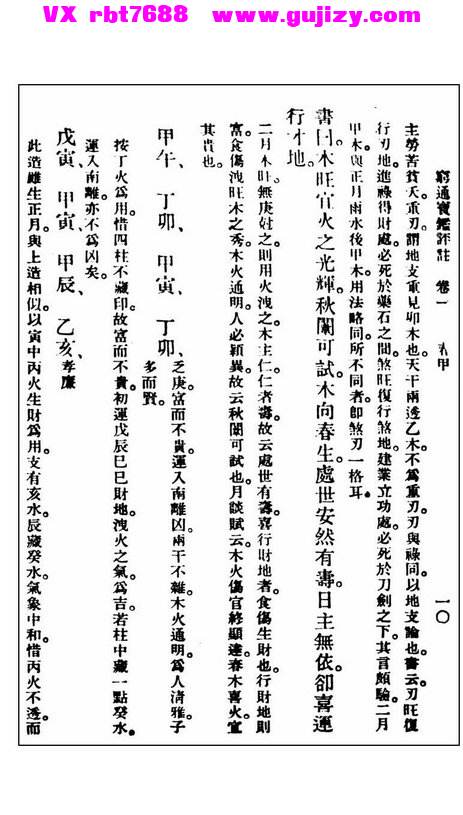 VX rbt7688 www.gujizy.com
窮通寶鑑評註 卷一 甲 一〇
主勞苦貧夭重刃謂地支重見卯木也。天干兩透乙木不爲重刃刃與祿同。以地支論也。書云刃旺復
行刃地。進祿得財處。必死於藥石之間。煞旺復行煞地。建業立功處。必死於刀劍之下。其言頗驗。二月
甲木與正月雨水後甲木用法略同。所不同者。卽煞刃一格耳。
書曰。木旺宜火之光輝。秋闈可試。木向春生。處世安然有壽。日主無依。卻喜運
行才地。
二月木旺。無庚好之。則用火洩之。木主仁。仁者壽。故云處世有壽。喜行財地者。食傷生財也。行財地則
富。食傷洩旺木之秀。木火通明。人必穎異。故云秋闈可試也。月談賦云。木火傷官終顯達。春木喜火。宜
其貴也。
甲午、丁卯、甲寅、丁卯、
乏庚。富而不貴。運入南離凶。兩干不雜。木火通明。爲人淸雅。子
多而賢。
按丁火爲用。惜四柱不藏印。故富而不貴。初運戊辰己巳財地。洩火之氣。爲吉。若柱中藏一點癸水。
運入南離亦不爲凶矣。
戊寅、甲寅、甲辰、乙亥、孝廉
此造雖生正月。與上造相似。以寅中丙火生財爲用。支有亥水。辰藏癸水。氣象中和。惜丙火不透。而